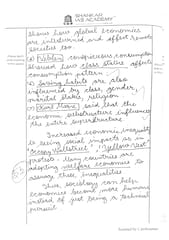 SHANKAR
IAS ACADEMY
shows how global economies
are interlinked and affect remote
societies too.
Veblen conspicuous consumption
showed how class status affects
consumption pattern
Saving habits are also
influenced by class, gender,
marital status, religion
Karl Marx said that the
economic substructure influences
the entire superstructure
Increased economic inequality
is seeing social impacts as in
"Occupy Wallstreet", "Yellow vest"
protests. Many countries are
adopting welfare economies to
these inequalities
Thus sociology can help
economies become more humane
instead of just being a technical
pursuit
Scanned by CamScanner